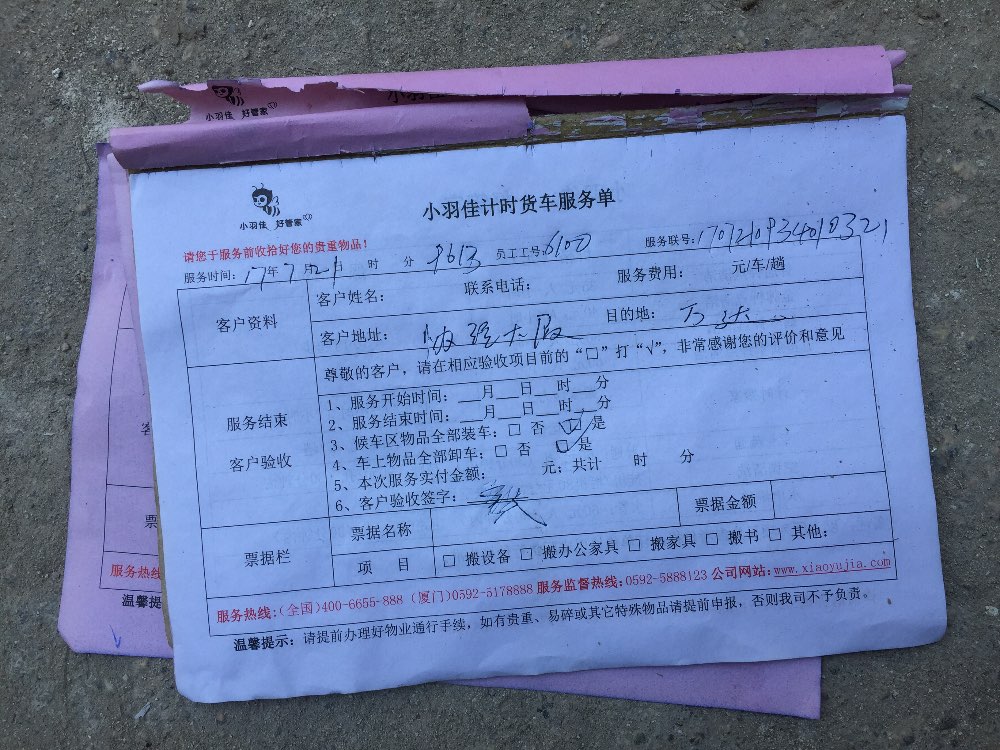 小羽佳 好管家
小羽佳 好管家
小羽佳计时货车服务单
请您于服务前收拾好您的贵重物品!
服务时间: 17年7月21日 时 分 9613 员工工号:6100 服务联号:
客户资料
客户姓名: 联系电话: 服务费用: 元/车/趟
客户地址: 大厦 目的地: 万达
服务结束
客户验收
尊敬的客户，请在相应验收项目前的“□”打“√”，非常感谢您的评价和意见
1、服务开始时间: __月__日__时__分
2、服务结束时间: __月__日__时__分
3、候车区物品全部装车: □ 否 □ 是
4、车上物品全部卸车: □ 否 □ 是
5、本次服务实付金额: 元; 共计 时 分
6、客户验收签字:
票据栏
票据名称 票据金额
项 目 □ 搬设备 □ 搬办公家具 □ 搬家具 □ 搬书 □ 其他:
服务热线:(全国)400-6655-888 (厦门)0592-5178888 服务监督热线:0592-5888123 公司网站:www.xiaoyujia.com
温馨提示: 请提前办理好物业通行手续，如有贵重、易碎或其它特殊物品请提前申报，否则我司不予负责。
票
服务热线
温馨提